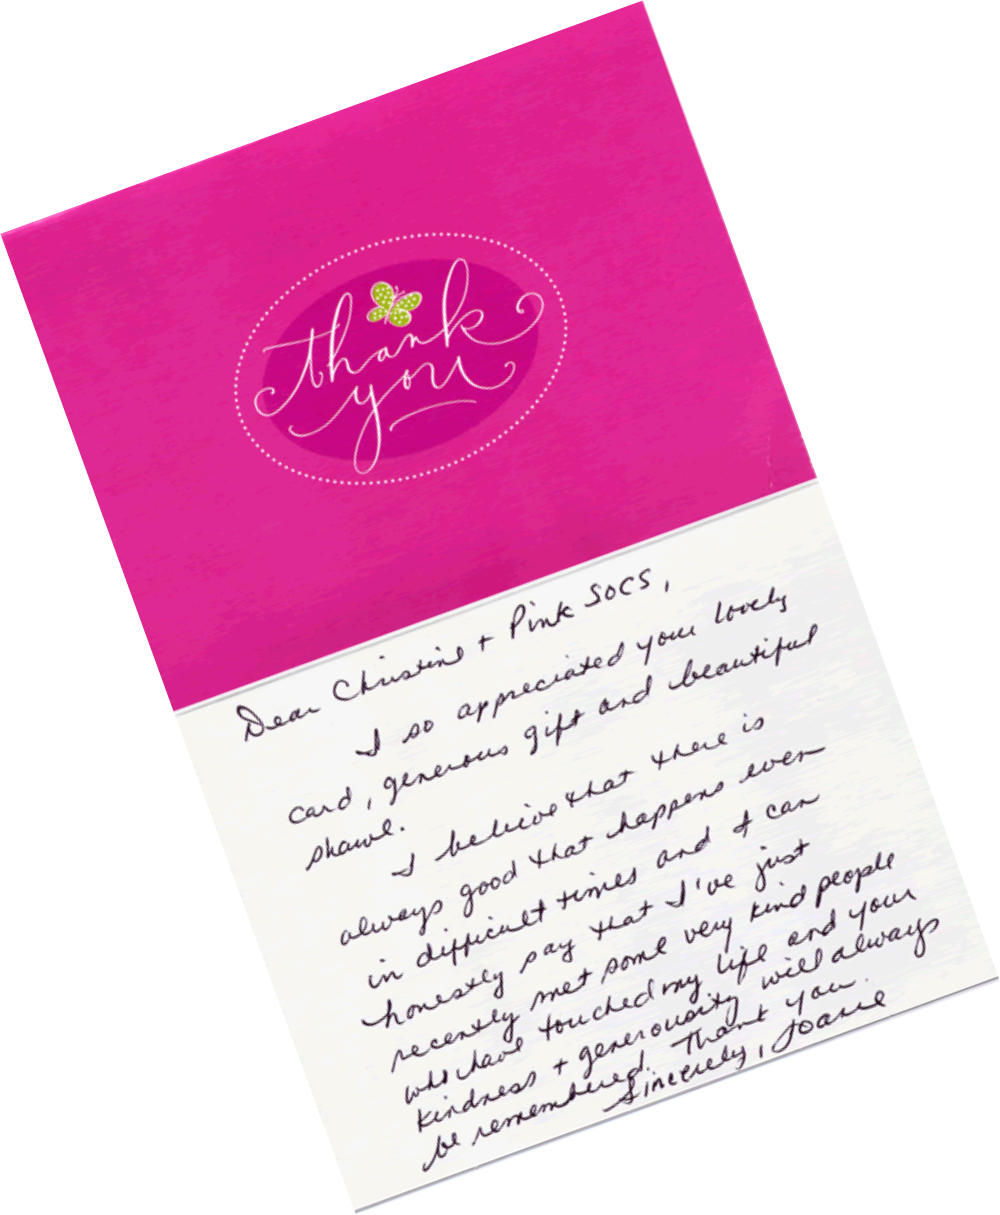 thank
you
Dear Christine + Pink SOCS,
I so appreciated your lovely
card, generous gift and beautiful
shawl.
I believe that there is
always good that happens even
in difficult times and I can
honestly say that I've just
recently met some very kind people
who have touched my life and your
kindness + generousity will always
be remembered. Thank you.
Sincerely, Joanie